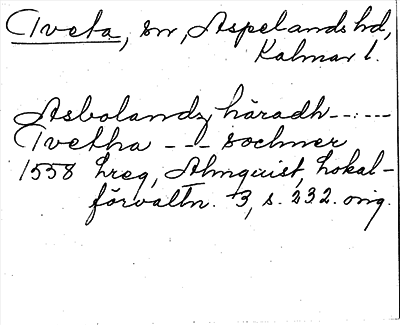 Tveta, sn, Aspelands hd,
Kalmar l.
Asbolandz häradh -----
Tvetha --- sochner
1558 Lreg, Almquist, Lokal-
förvaltn. 3, s. 232. orig.